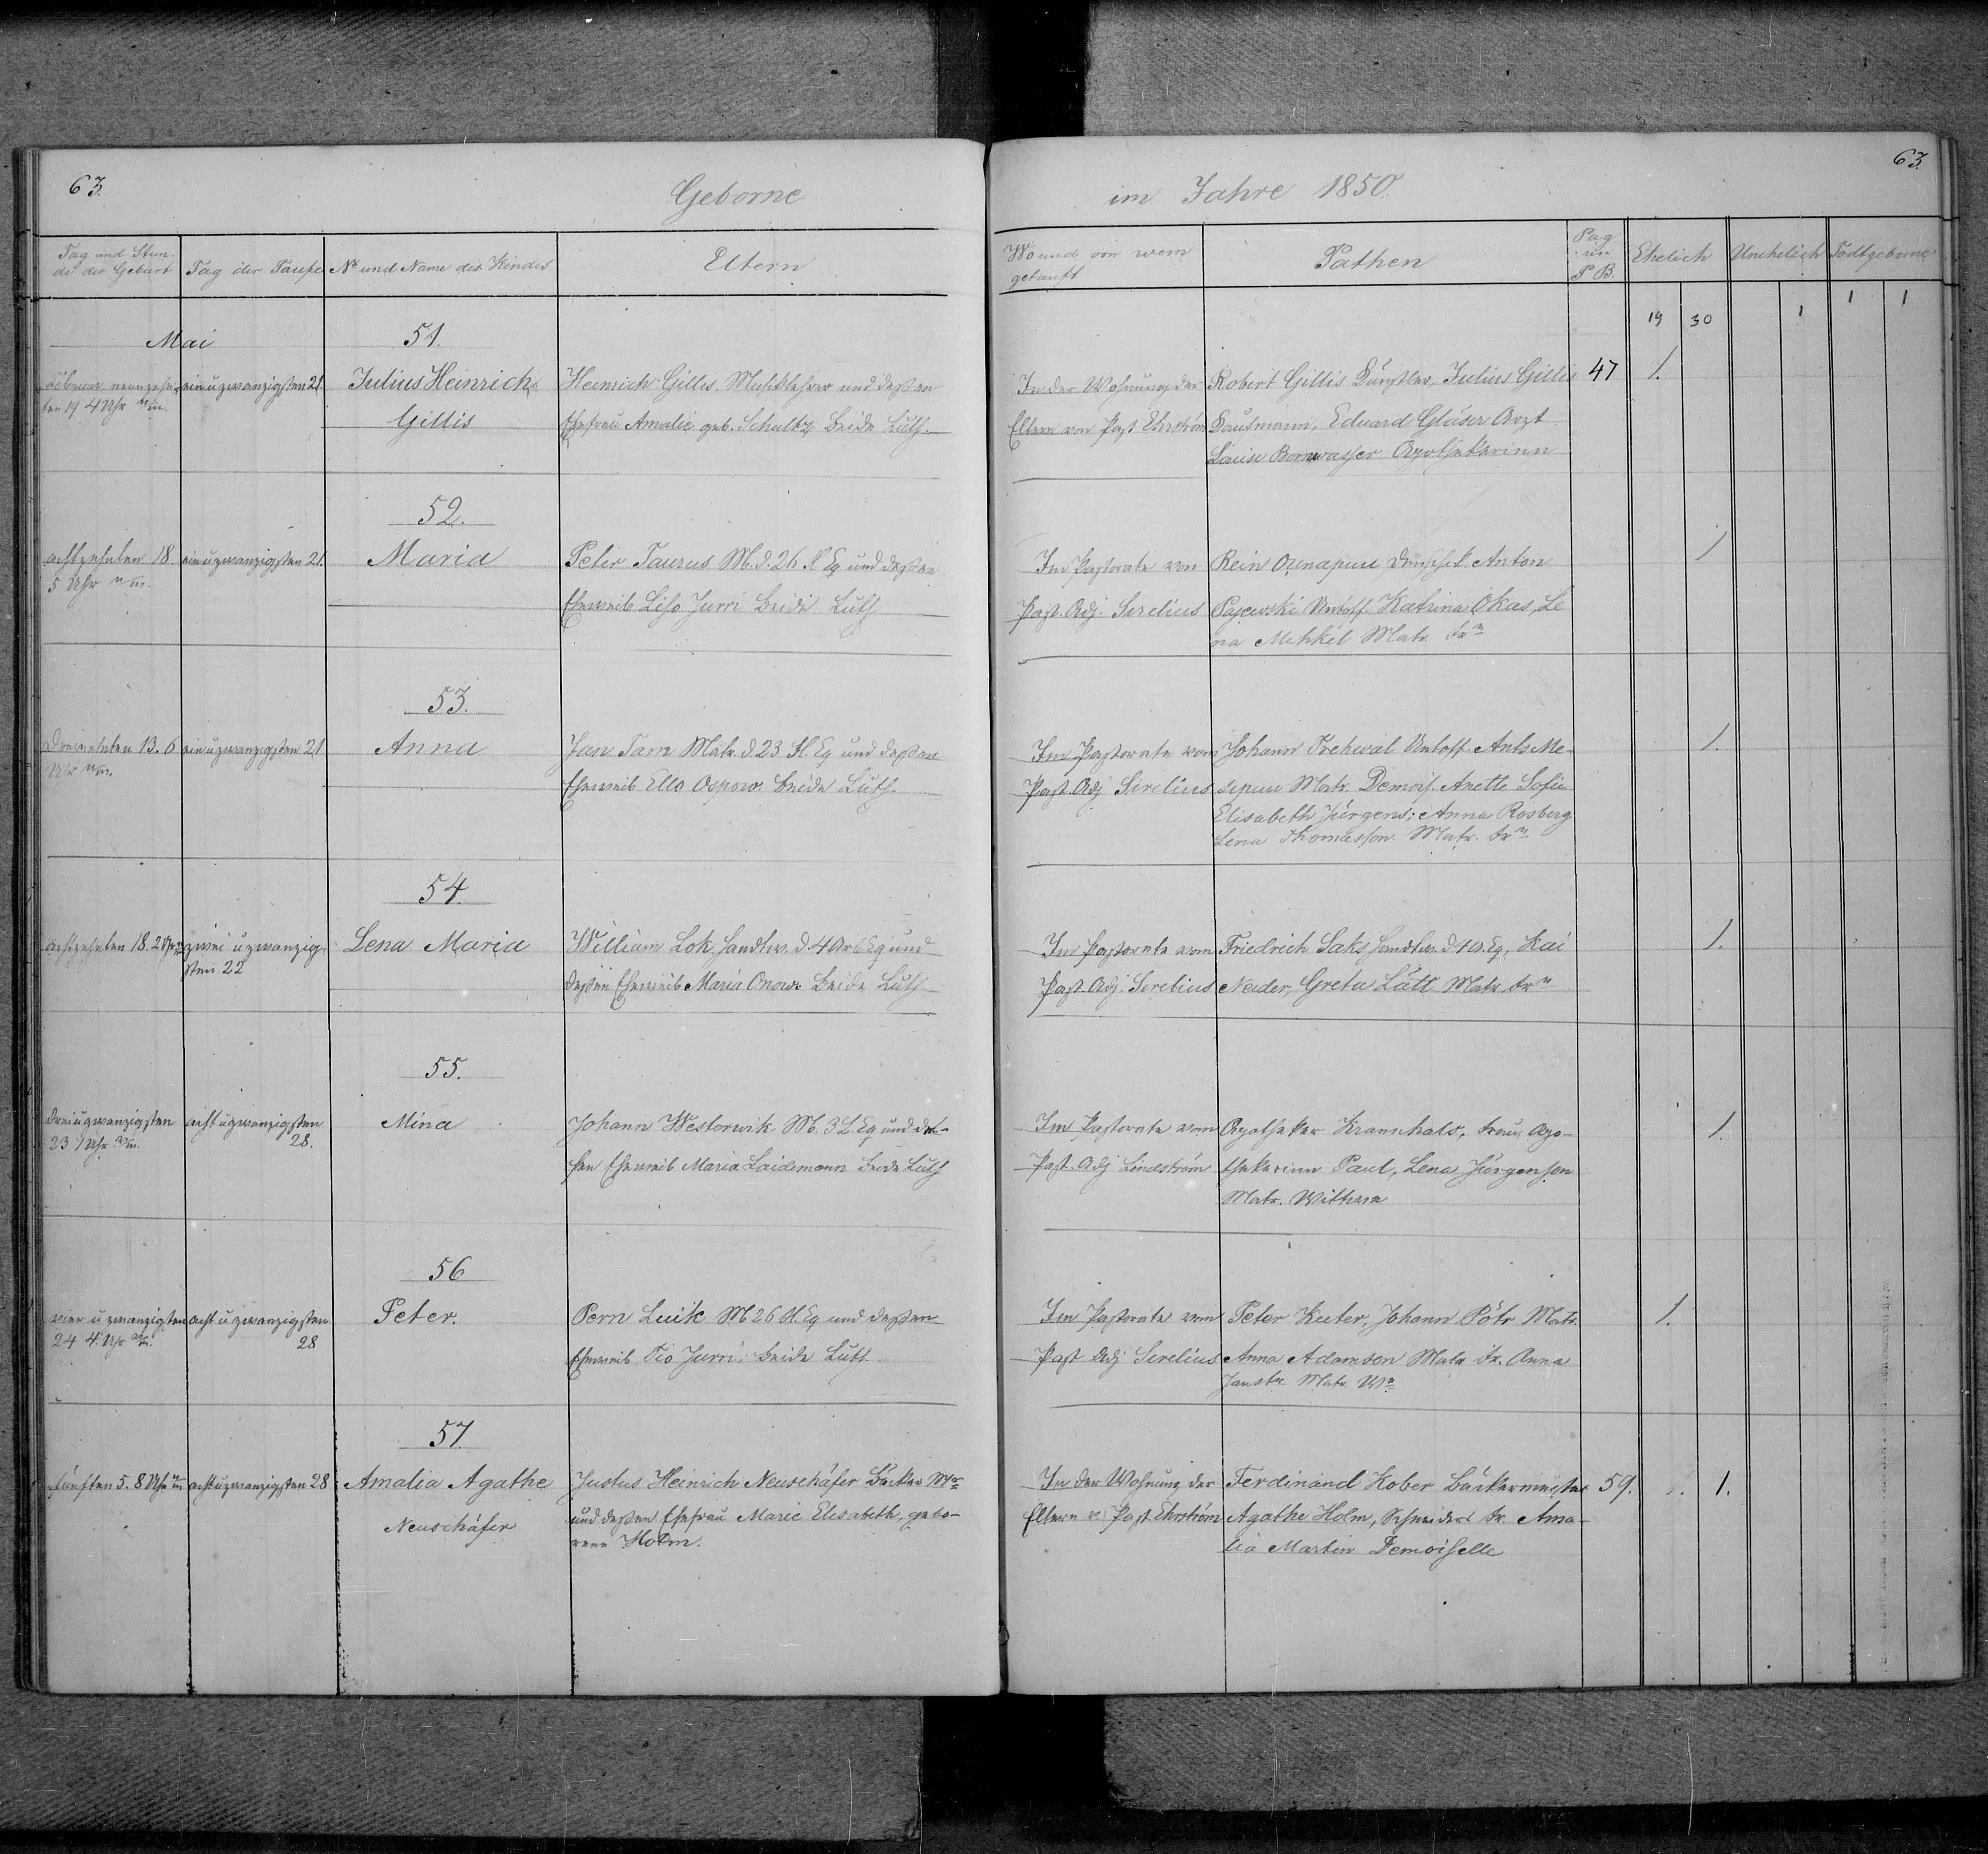 63.
63.
Geborne
im Jahre 1850.
Tag und Stun-
de der Geburt
Tag der Taufe
No und Name des Kindes
Eltern
Wo und von wem
getauft
Pathen
Pag
im
P B.
Ehelich
Unehelich
Todtgeborne
19 30 1 1 1
Mai
51.
Februar, neunzehn-
ten 19 4 Uhr
ein u zwanzigsten 21.
Julius Heinrich
Gillis
Heinrich Gillis, Musiklehrer und dessen
Ehefrau Amalie geb. Schultz beide Luth.
In der Wohnung der
Eltern von Past Ehrström
Robert Gillis Künstler, Julius Gillis
Kaufmann, Eduard Gläser Arzt
Louise Bornwasser Apothekerinn
47
1.
52.
achtzehnten 18.
5 Uhr
ein u zwanzigsten 21.
Maria
Peter Taurus M. d. 26 Fl Eq und dessen
Eheweib Liso Jurri beide Luth
Im Pastorate von
Past. Adj. Sirelius
Rein Ounapuu Anton
Pajewski Untoff. Katrina Okas, Le
na Mihkel Matr. Frn
1
53.
Dreizehnten 13. 6
Uhr
ein u zwanzigsten 21
Anna
Jan Tam Matr. d 23 Fl. Eq und dessen
Eheweib Ello Ospow. beide Luth.
Im Pastorate vom
Past. Adj Sirelius
Johann Trehwal Untoff. Ants Me-
sepuu Matr. Demois. Anette Sofie
Elisabeth Jürgens; Anna Rosberg
Lena Thomasson. Matr. Frn
1.
54.
achtzehnten 18. 2 Uhr
zwei u zwanzig-
sten 22
Lena Maria
William Lok, Handlw. d. 4 Ar Eq und
dessen Eheweib Maria Onow. beide Luth
Im Pastorate vom
Past. Adj. Sirelius
Friedrich Saks Handlw. d 4 Ar. Eq, Kai
Neider, Greta Lätt Matr. Frn
1.
55.
drei u zwanzigsten
23 1 Uhr
acht u zwanzigsten
28.
Mina
Johann Westerwik M. 3 L Eq und des-
sen Eheweib Maria Laidemann beide Luth
Im Pastorate vom
Past. Adj Lindström
Apotheker Krannhals, Frau Apo-
thekerinn Paul, Lena Jürgenson
Matr. Wittwe
1.
56
vier u zwanzigsten
24 4 Uhr
acht u zwanzigsten
28
Peter.
Pern Luik M 26 Fl. Eq und dessen
Eheweib Tio Jurri, beide Luth.
Im Pastorate vom
Past Adj Sirelius
Peter Kuter, Johann Pötr Matr.
Anna Adamson Matr Fr. Anna
Matr. Wn
1.
57.
fünften 5. 8 Uhr
acht u zwanzigsten 28
Amalia Agathe
Neuschäfer
Justus Heinrich Neuschäfer Bäcker Mr
und dessen Ehefrau Marie Elisabeth, gebo-
rene Holm.
In der Wohnung der
Eltern v. Past Ehrström
Ferdinand Kober Bäckermeister
Agathe Holm, Schneiders Fr. Ama-
lia Martin Demoiselle
59.
1.